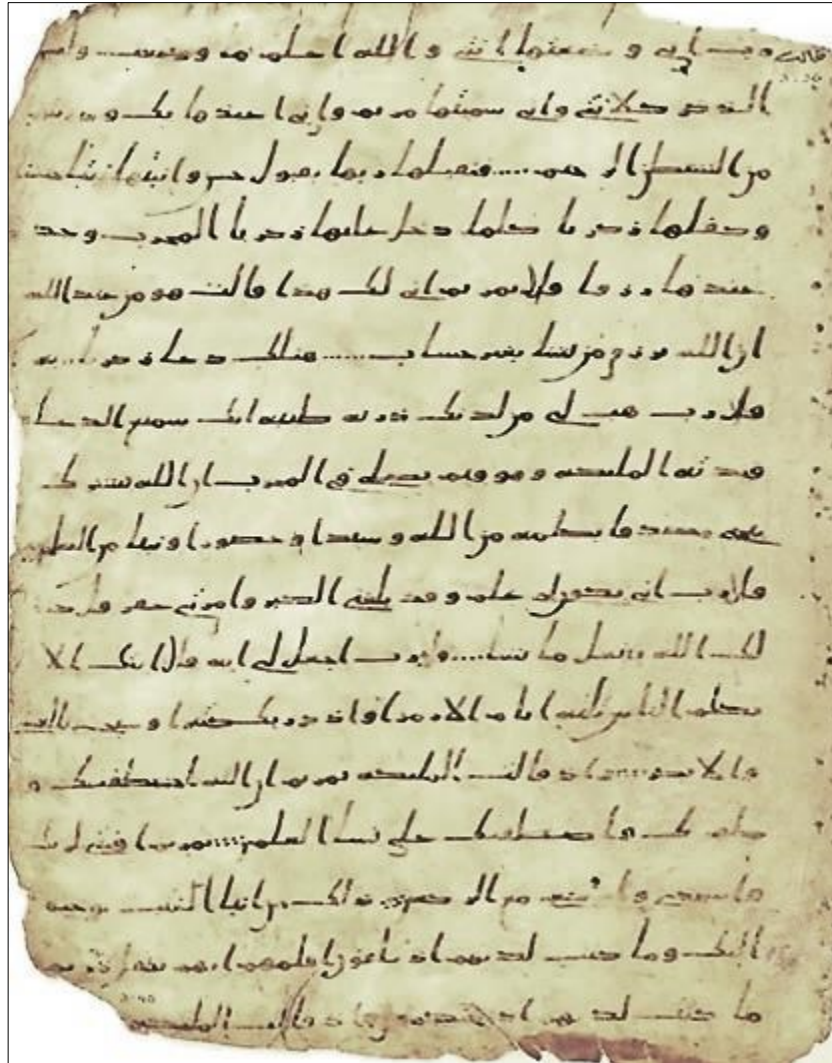 قالت رب اني وضعتها انثى والله اعلم بما وضعت وليس
3:36
الذكر كالانثى واني سميتها مريم واني اعيذها بك وذريتها
من الشيطن الرجيم فتقبلها ربها بقبول حسن وانبتها نباتا حسنا
وكفلها زكريا كلما دخل عليها زكريا المحرب وجد
عندها رزقا قل يمريم انى لك هذا قالت هو من عند الله
ان الله يرزق من يشا بغير حساب هنلك دعا زكريا ربه
قل رب هب لي من لدنك ذرية طيبة انك سميع الدعا
فندته الملئكة وهو قيم يصلي في المحرب ان الله يبشرك
بيحيى مصدقا بكلمة من الله وسيدا وحصورا ونبيا من الصلحين
قل رب انى يكون لي غلم وقد بلغني الكبر وامرتي عقر قل كذ
لك الله يفعل ما يشا قل رب اجعل لي اية قل ايتك الا
تكلم الناس ثلثة ايام الا رمزا واذكر ربك كثيرا وسبح بالعشي
والابكر واذ قالت الملئكة يمريم ان الله اصطفيك و
طهرك واصطفيك على نسا العلمين يمريم اقنتي لربك
واسجدي واركعي مع الركعين ذلك من انبا الغيب نوحيه
اليك وما كنت لديهم اذ يلقون اقلمهم ايهم يكفل مريم و
ما كنت لديهم اذ يختصمون اذ قالت الملئكة
3:45